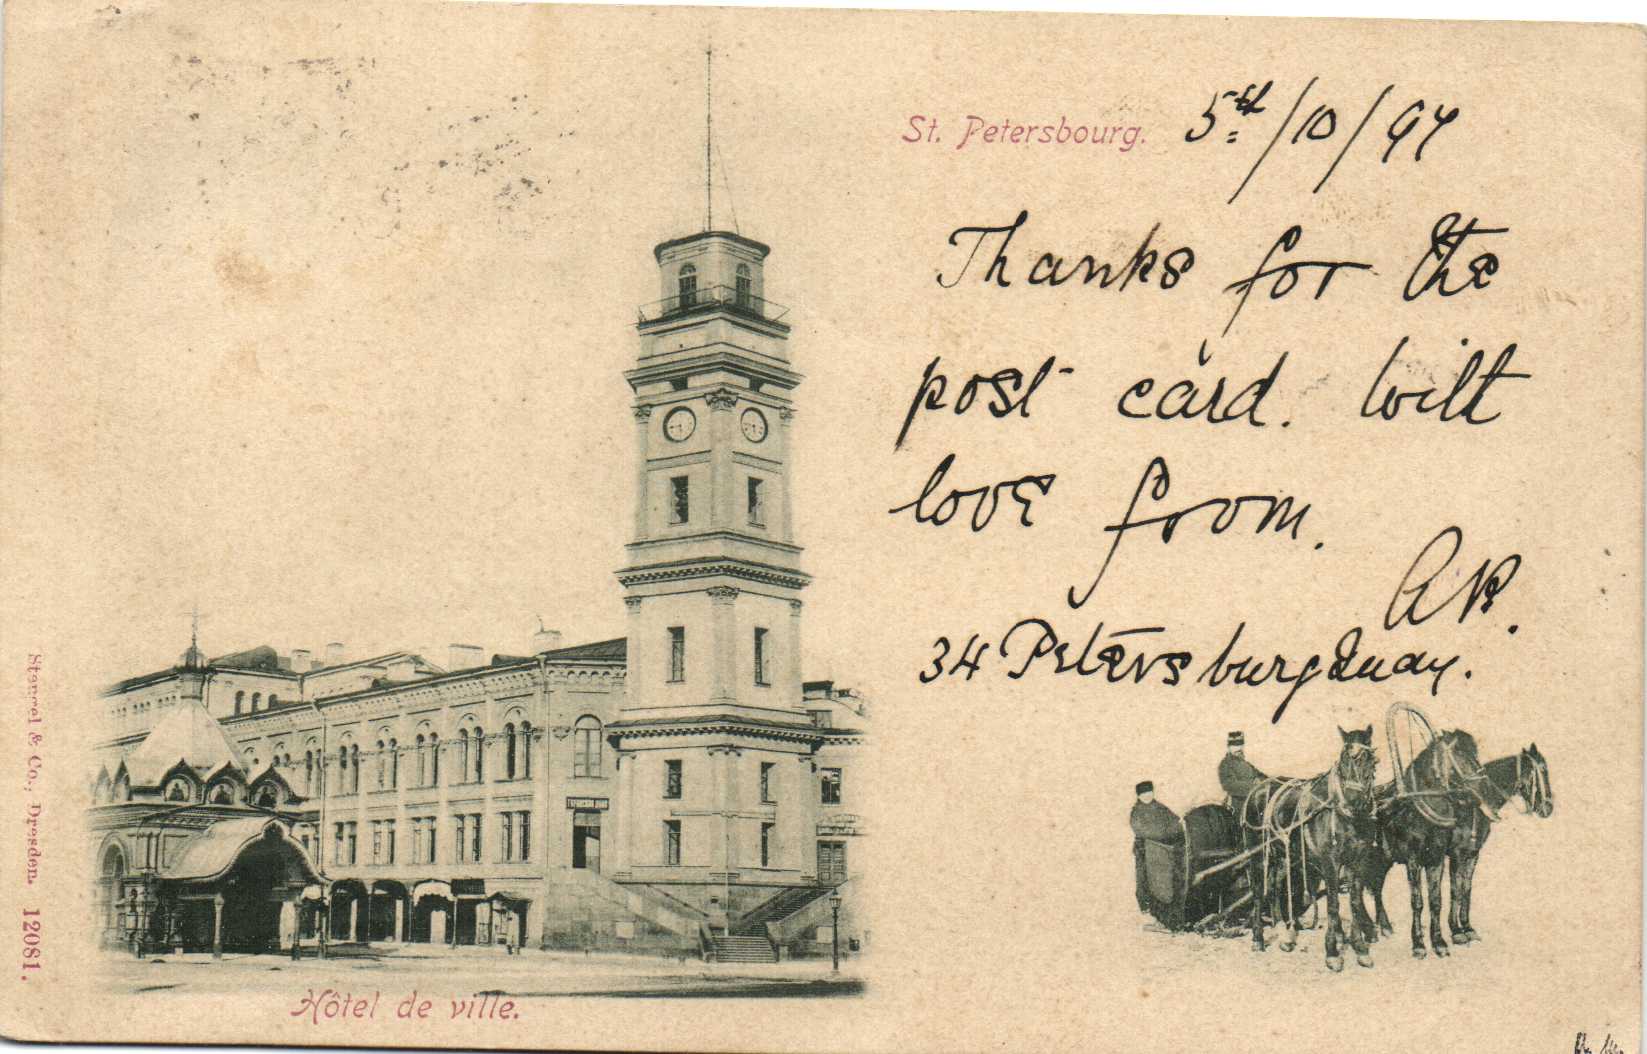 St. Petersbourg. 5th/10/97
Thanks for the
post card. With
love from.
AB.
34 Petersburg Quay.
Hôtel de ville.
Stengel & Co., Dresden. 12081.